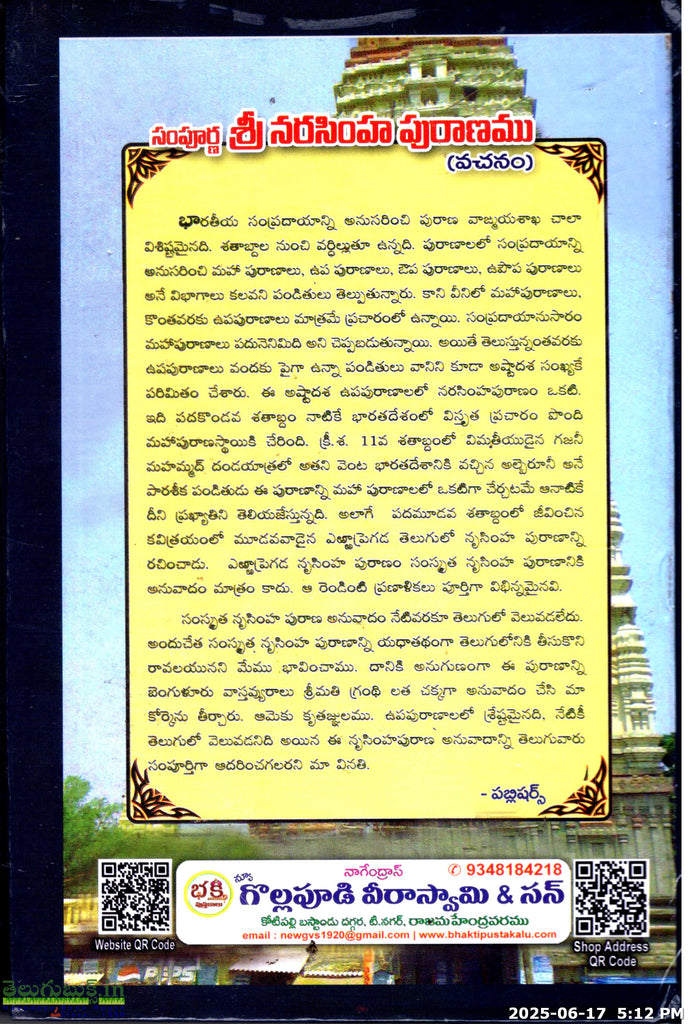 సంపూర్ణ శ్రీ నరసింహ పురాణము
(వచనం)
భారతీయ సంప్రదాయాన్ని అనుసరించి పురాణ వాఙ్మయశాఖ చాలా
విశిష్టమైనది. శతాబ్దాల నుంచి వర్ధిల్లుతూ ఉన్నది. పురాణాలలో సంప్రదాయాన్ని
అనుసరించి మహా పురాణాలు, ఉప పురాణాలు, ఔప పురాణాలు, ఉపౌప పురాణాలు
అనే విభాగాలు కలవని పండితులు తెల్పుతున్నారు. కాని వీనిలో మహాపురాణాలు,
కొంతవరకు ఉపపురాణాలు మాత్రమే ప్రచారంలో ఉన్నాయి. సంప్రదాయానుసారం
మహాపురాణాలు పదునెనిమిది అని చెప్పబడుతున్నాయి. అయితే తెలుస్తున్నంతవరకు
ఉపపురాణాలు వందకు పైగా ఉన్నా పండితులు వానిని కూడా అష్టాదశ సంఖ్యకే
పరిమితం చేశారు. ఈ అష్టాదశ ఉపపురాణాలలో నరసింహపురాణం ఒకటి.
ఇది పదకొండవ శతాబ్దం నాటికే భారతదేశంలో విస్తృత ప్రచారం పొంది
మహాపురాణస్థాయికి చేరింది. క్రీ.శ. 11వ శతాబ్దంలో విమతీయుడైన గజనీ
మహమ్మద్ దండయాత్రలో అతని వెంట భారతదేశానికి వచ్చిన అల్బెరూనీ అనే
పారశీక పండితుడు ఈ పురాణాన్ని మహా పురాణాలలో ఒకటిగా చేర్చటమే ఆనాటికే
దీని ప్రఖ్యాతిని తెలియజేస్తున్నది. అలాగే పదమూడవ శతాబ్దంలో జీవించిన
కవిత్రయంలో మూడవవాడైన ఎఱ్ఱాప్రెగడ తెలుగులో నృసింహ పురాణాన్ని
రచించాడు. ఎఱ్ఱాప్రెగడ నృసింహ పురాణం సంస్కృత నృసింహ పురాణానికి
అనువాదం మాత్రం కాదు. ఆ రెండింటి ప్రణాళికలు పూర్తిగా విభిన్నమైనవి.
సంస్కృత నృసింహ పురాణ అనువాదం నేటివరకూ తెలుగులో వెలువడలేదు.
అందుచేత సంస్కృత నృసింహ పురాణాన్ని యధాతథంగా తెలుగులోనికి తీసుకొని
రావలయునని మేము భావించాము. దానికి అనుగుణంగా ఈ పురాణాన్ని
బెంగుళూరు వాస్తవ్యురాలు శ్రీమతి గ్రంథి లత చక్కగా అనువాదం చేసి మా
కోర్కెను తీర్చారు. ఆమెకు కృతజ్ఞులము. ఉపపురాణాలలో శ్రేష్ఠమైనది, నేటికీ
తెలుగులో వెలువడనిది అయిన ఈ నృసింహపురాణ అనువాదాన్ని తెలుగువారు
సంపూర్తిగా ఆదరించగలరని మా వినతి.
- పబ్లిషర్స్
నాగేంద్రాస్ ✆ 9348184218
భక్తి పుస్తకాలు
న్యూ గొల్లపూడి వీరాస్వామి & సన్
కోటిపల్లి బస్టాండు దగ్గర, టి.నగర్, రాజమహేంద్రవరము
email : newgvs1920@gmail.com | www.bhaktipustakalu.com
Website QR Code
Shop Address
QR Code
తెలుగుబుక్స్.in
2025-06-17 5:12 PM